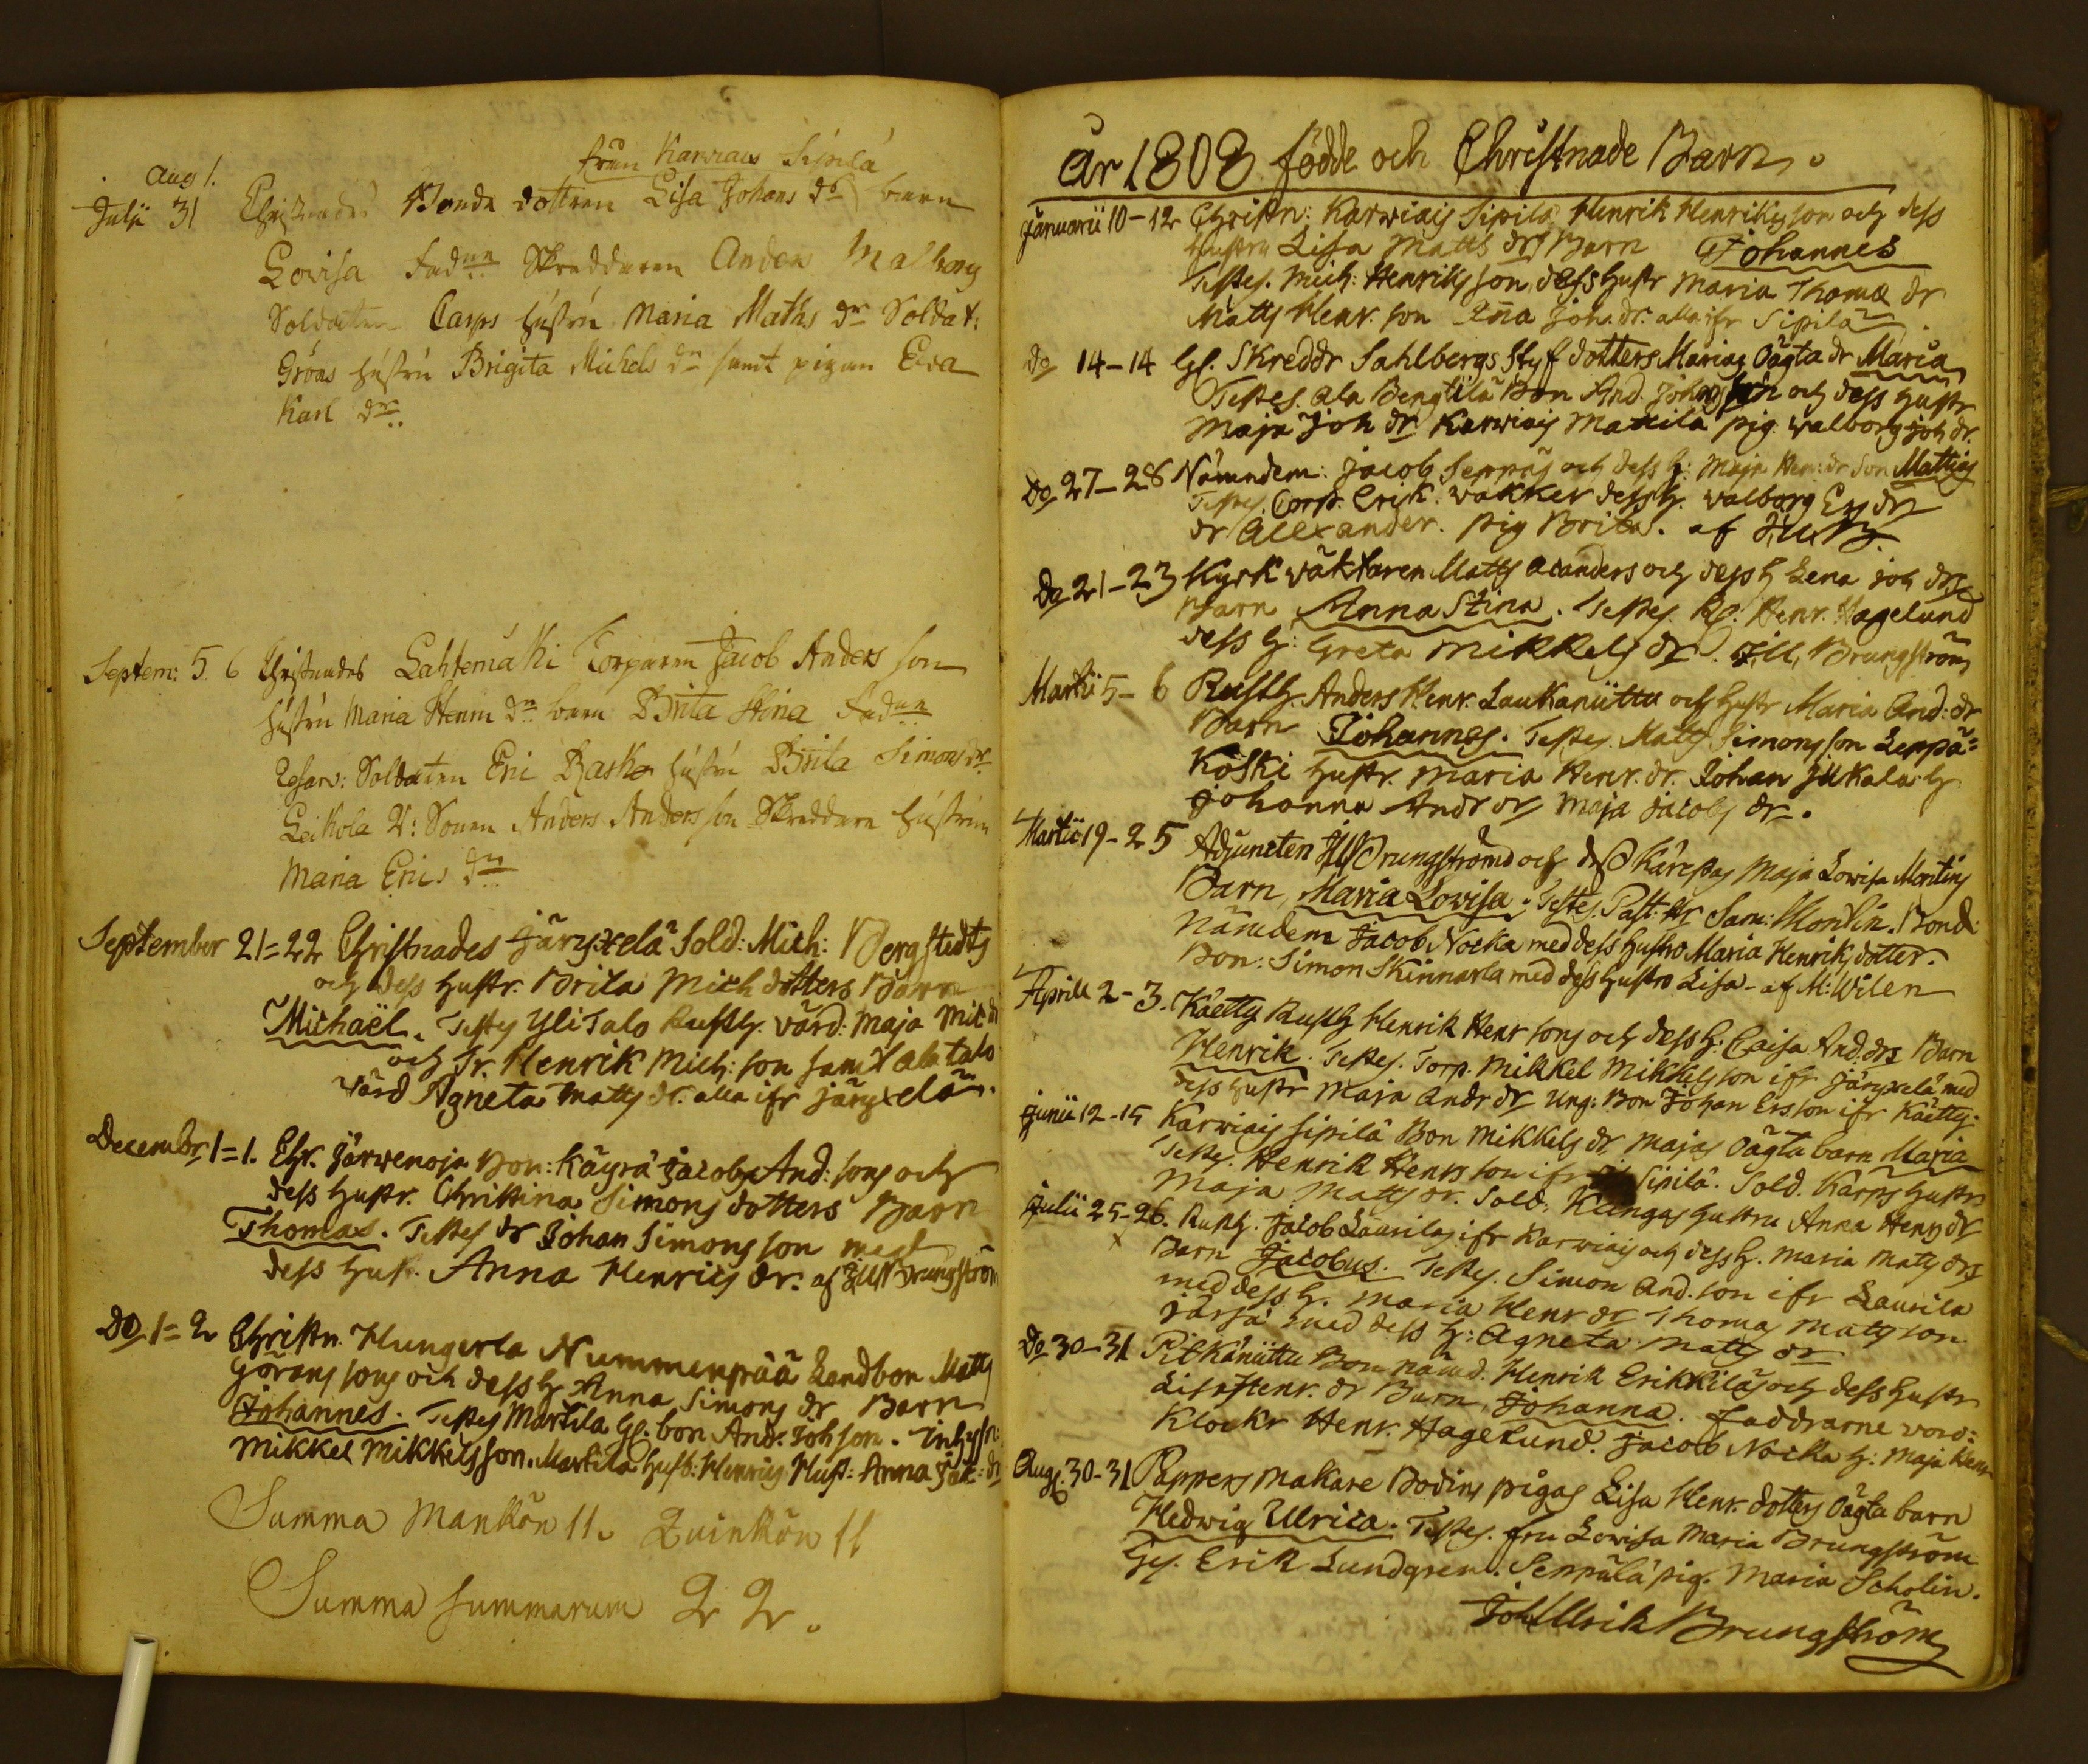 från Karwais Sipilä
Aug 1.
Julii 31 Christnades Bonde dottren Lisa Johans dr barn
Lovisa Faddr Skreddaren Anders Malberg
Soldaten Carps hústrú Maria Maths dr Soldat:
Gröns hústrú Brigita Michels dr samt pigan Eva
Karl dr
Septem: 5 6 Christnades Lahtemäki Torparen Jacob Anders son
hústrú Maria Henrn dr barn Brita Stina Faddr
Reserv: Soldaten Eric Rask hústrú Brita Simons dr
Leikola U: Sonen Anders Andersson Skreddare hústrún
Maria Erics dr
September 21=22 Christnades Järyxelä Sold: Mich: Bergstedts
och dess hustr. Brita Mich dotters Barn
Michaël. Testes Yli Talo Rusth. värd: Maja Mic dr
och Dr. Henrik Mich: son samt Ala talo
värd Agneta Matts dr. alla ifr järyxelä.
Decembr 1=1. Chr. Järwenoja Bon: Käyrä Jacobs And: sons och
dess hustr. Christina Simons dotters Barn
Thomas. Testes dr Johan Simons son med
dess hust. Anna Henrics dr. af JUBrungström
Do 1=2 Christn. Hungerla Nummenpää Landbon Matts
Görans sons och dess h Anna Simons dr Barn
Johannes. Testes Martila Gl. bon And. Joh son. Inhyses:
Mikkel Mikkelsson. Martila husb: Henrics Hust: Anna Jak: dr
Summa Mankön 11. Quinkön 11
Summa summarum 22.
År 1808 födde och Christnade Barn.
Januarii 10-12 Christn: Karwiais Sipilä Henrik Henriksson och dess
hustru Lisa Matts drs Barn Johannes
Testes. Mich: Henriksson, dess hustr Maria Thomæ dr
Matts Henr. son Anna Joh. dr. alla ifr Sipilä.
Do 14-14 Gl. Skreddr Sahlbergs Styfdotters Marias Oägta dr Maria
Testes. Ala Bengtilä Bon And. Johans son och dess hustr
Maja Joh dr Karwiais Mattila pig. Walborg Joh dr.
Do 27-28 Nämndem: Jacob Seppäs och dess h: Maja Hen: dr Son Mattias
Testes. Corp. Erik. Wakker dess h. Walborg Ers dr
dr Alexander. pig Brita. af J.U.B.
Do 21-23 Kyrkwäktaren Matts ACanders och dess h Lena Joh drs
Barn Anna Stina. Testes. Kl. Henr. Hagelund
dess h: Greta Mikkels dr. J.U. Brungström
Martii 5-6 Rusth. Anders Henr. Laukaniittu och hustr Maria And: dr
Barn Johannes. Testes. Matts Simonsson Leppä=
koski hustr. Maria Henr. dr. Johan Jukala h
Johanna Andr dr Maja Jacobs dr.
Martii 19-25 Adjuncten JUBrungströms och dess Käresas Maja Lowisa Montins
Barn, Maria Lovisa. Testes. Past: Hr Sam: Montin. Bond:
Nämdem Jacob Nocka med dess hustro Maria Henriks dotter.
Bon: Simon Skinnarla med dess hustro Lisa - af M: Wilen
Aprill 2-3. Käetty Rusth Henrik Henr sons och dess h: Caisa And: drs Barn
Henrik. Testes. Torp. Mikkel Mikkelsson ifr Järyxelä med
dess hustr Maja Andr dr Ung: Bon Johan Ersson ifr Käetty.
Junii 12-15 Karwiais Sipilä Bon Mikkels dr Majas Oägta barn Maria
Testes. Henrik Henrs son ifr Sipilä. Sold. Karps hustr
Maja Matts dr. Sold. Kangas hustru Anna Henrs dr
Julii 25-26. Rusth. Jacob Laurilas ifr Karwiais och dess h. Maria Mats drs
x Barn Jacobus. Testes. Simon And. son ifr Laurila
med dess h. Maria Henr dr Thomas Matts son
Järfä med dess h: Agneta Matts dr
Do 30-31 Pitkäniittu Bon nämd. Henrik Erikkiläs och dess hustr
Lisa Henr. dr Barn, Johanna. Faddrarne vord:
Klockr Henr. Hagelund. Jacob Nocka h: Maja Henr
Augs. 30-31 Pappers makare Bodins pigas Lisa Henr. dotters Oägta barn
Hedwig Ulrica. Testes. fru Lowisa Maria Brungström
Ges. Erik Lundgren. Seppälä pig. Maria Scholin.
Joh Ulrik Brungström